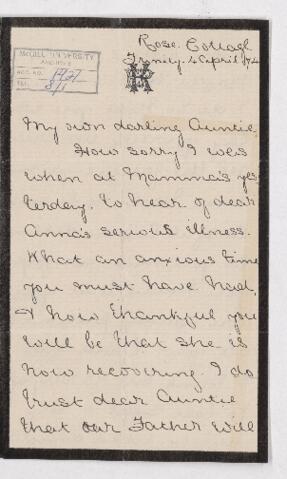 Rose Cottage
Trinity 4 April /74
McGILL UNIVERSITY
ARCHIVES
ACC. NO. 1421
REF. 8/1
My own darling Auntie
How sorry I was
when at Mamma's yes
terday. to hear of dear
Anna's serious illness.
What an anxious time
you must have had,
& how thankful you
will be that she is
now recovering. I do
trust dear Auntie
that our Father will